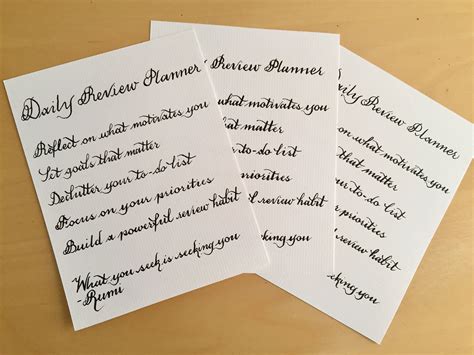 Daily Review Planner
Reflect on what motivates you
Set goals that matter
Declutter your to-do list
Focus on your priorities
Build a powerful review habit
What you seek is seeking you
-Rumi
Review Planner
what motivates you
that matter
to-do list
priorities
review habit
seeking you
Review Planner
what motivates you
that matter
to-do list
priorities
review habit
seeking you